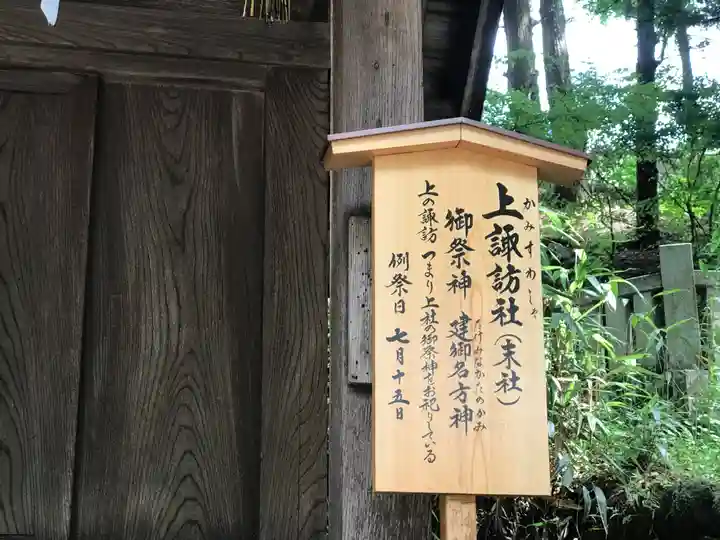 かみすわしゃ
上諏訪社(末社)
たけみなかたのかみ
御祭神 建御名方神
上の諏訪 つまり上社の御祭神をお祀りしている
例祭日 七月十五日